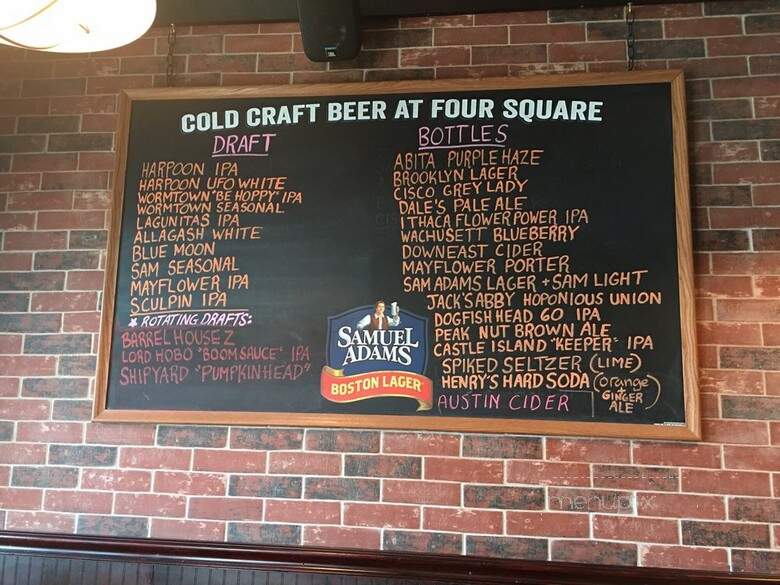 COLD CRAFT BEER AT FOUR SQUARE
DRAFT
HARPOON IPA
HARPOON UFO WHITE
WORMTOWN "BE HOPPY" IPA
WORMTOWN SEASONAL
LAGUNITAS IPA
ALLAGASH WHITE
BLUE MOON
SAM SEASONAL
MAYFLOWER IPA
SCULPIN IPA
* ROTATING DRAFTS:
BARREL HOUSE Z
LORD HOBO "BOOM SAUCE" IPA
SHIPYARD "PUMPKINHEAD"
BOTTLES
ABITA PURPLE HAZE
BROOKLYN LAGER
CISCO GREY LADY
DALE'S PALE ALE
ITHACA FLOWER POWER IPA
WACHUSETT BLUEBERRY
DOWNEAST CIDER
MAYFLOWER PORTER
SAM ADAMS LAGER + SAM LIGHT
JACK'S ABBY HOPONIOUS UNION
DOGFISH HEAD 60 IPA
PEAK NUT BROWN ALE
CASTLE ISLAND "KEEPER" IPA
SPIKED SELTZER (LIME)
HENRY'S HARD SODA (Orange
+
GINGER
ALE)
AUSTIN CIDER
SAMUEL
ADAMS
BOSTON LAGER
JBL